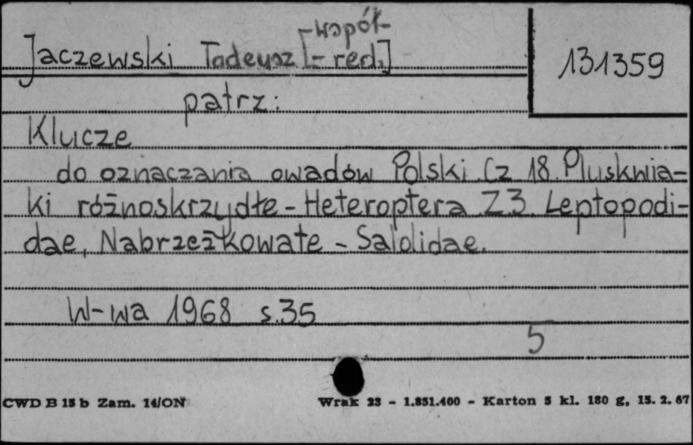 -współ-
Jaczewski Tadeusz [-red.] 131359
patrz:
Klucze
do oznaczania owadów Polski Cz 18. Pluskwia=
ki różnoskrzydłe - Heteroptera Z3 Leptopodi-
dae, Nabrzeżkowate - Saldidae.
W-wa 1968 s.35
5
CWD B 15 b Zam. 14/ON Wrak 23 - 1.851.400 - Karton 5 kl. 180 g, 15. 2. 67